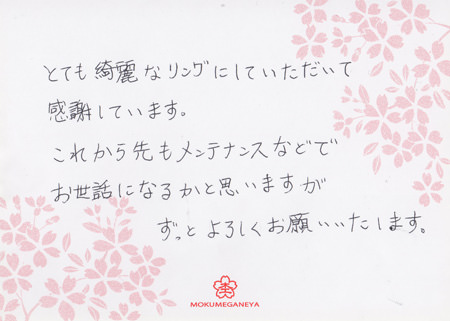 とても綺麗なリングにしていただいて
感謝しています。
これから先もメンテナンスなどで
お世話になるかと思いますが
ずっとよろしくお願いいたします。
杢
MOKUMEGANEYA